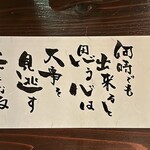 何時でも
出来ると
思う心は
大事を
見逃す